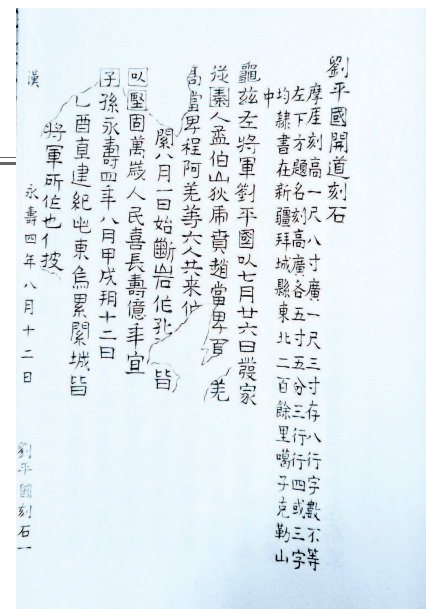 劉平國開道刻石
摩厓刻高一尺八寸廣一尺三寸存八行字數不等
左下方題名刻高廣各五寸五分三行行四或三字
均隸書在新疆拜城縣東北二百餘里噶子克勒山
中
龜兹左將軍劉平國以七月廿六日發家
從秦人孟伯山狄虎賁趙當卑百羌
當卑程阿羌等六人共来作
關八月一日始斷岩作孔 皆
以堅固萬歲人民喜長壽億年宜
子孫永壽四年八月甲戌朔十二日
乙酉直建紀此東烏累關城皆
將軍所作也亻披
漢 永壽四年八月十二日 劉平國刻石一